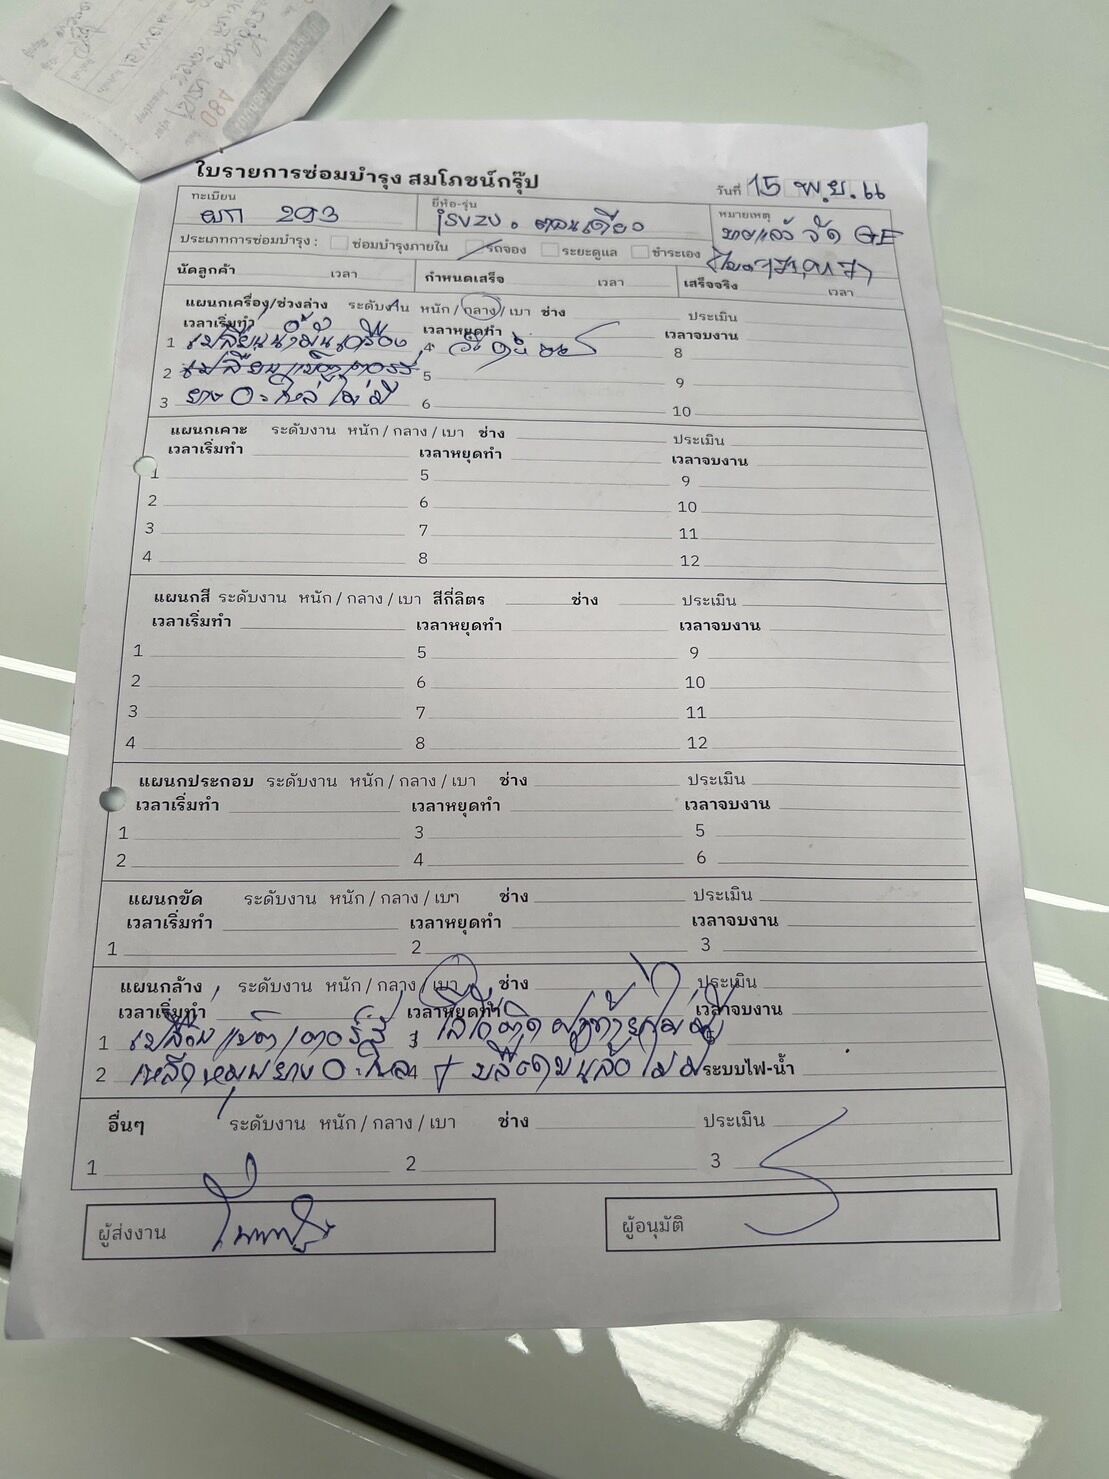 ใบรายการซ่อมบำรุง สมโภชน์กรุ๊ป
วันที่ 15 พ.ย.
ทะเบียน 293
ยี่ห้อ-รุ่น ISUZU ตอนเดียว
หมายเหตุ ขายแล้ว จัด GE
ประเภทการซ่อมบำรุง : ซ่อมบำรุงภายใน รถจอง ระยะดูแล ชำระเอง
นัดลูกค้า เวลา กำหนดเสร็จ เวลา เสร็จจริง เวลา
แผนกเครื่อง/ช่วงล่าง ระดับงาน หนัก / กลาง / เบา ช่าง ประเมิน
เวลาเริ่มทำ เวลาหยุดทำ เวลาจบงาน
1 เปลี่ยนน้ำมันเครื่อง 4 8
2 เปลี่ยนแบตเตอรี่ 5 9
3 ยางอะไหล่ไม่มี 6 10
แผนกเคาะ ระดับงาน หนัก / กลาง / เบา ช่าง ประเมิน
เวลาเริ่มทำ เวลาหยุดทำ เวลาจบงาน
1 5 9
2 6 10
3 7 11
4 8 12
แผนกสี ระดับงาน หนัก / กลาง / เบา สีกี่ลิตร ช่าง ประเมิน
เวลาเริ่มทำ เวลาหยุดทำ เวลาจบงาน
1 5 9
2 6 10
3 7 11
4 8 12
แผนกประกอบ ระดับงาน หนัก / กลาง / เบา ช่าง ประเมิน
เวลาเริ่มทำ เวลาหยุดทำ เวลาจบงาน
1 3 5
2 4 6
แผนกขัด ระดับงาน หนัก / กลาง / เบา ช่าง ประเมิน
เวลาเริ่มทำ เวลาหยุดทำ เวลาจบงาน
1 2 3
แผนกล้าง ระดับงาน หนัก / กลาง / เบา ช่าง ประเมิน
เวลาเริ่มทำ เวลาหยุดทำ เวลาจบงาน
1 เปลี่ยนแบตเตอรี่ 3
2 4 ไม่มี ระบบไฟ-น้ำ
อื่นๆ ระดับงาน หนัก / กลาง / เบา ช่าง ประเมิน
1 2 3
ผู้ส่งงาน ผู้อนุมัติ